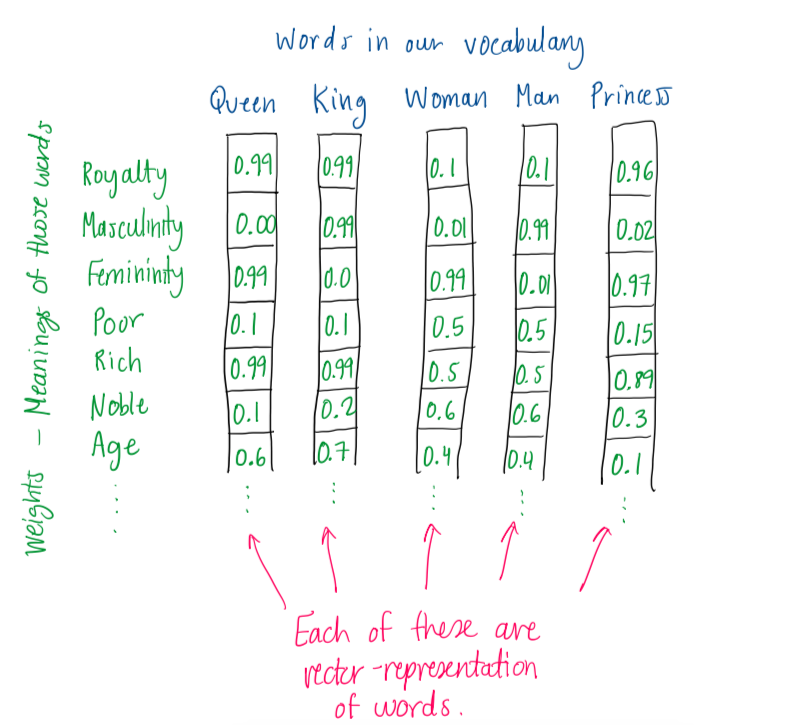 Words in our vocabulary
Queen King Woman Man Princess
Weights - Meanings of those words
Royalty 0.99 0.99 0.1 0.1 0.96
Masculinity 0.00 0.99 0.01 0.99 0.02
Femininity 0.99 0.0 0.99 0.01 0.97
Poor 0.1 0.1 0.5 0.5 0.15
Rich 0.99 0.99 0.5 0.5 0.89
Noble 0.1 0.2 0.6 0.6 0.3
Age 0.6 0.7 0.4 0.4 0.1
Each of these are
vector-representation
of words.